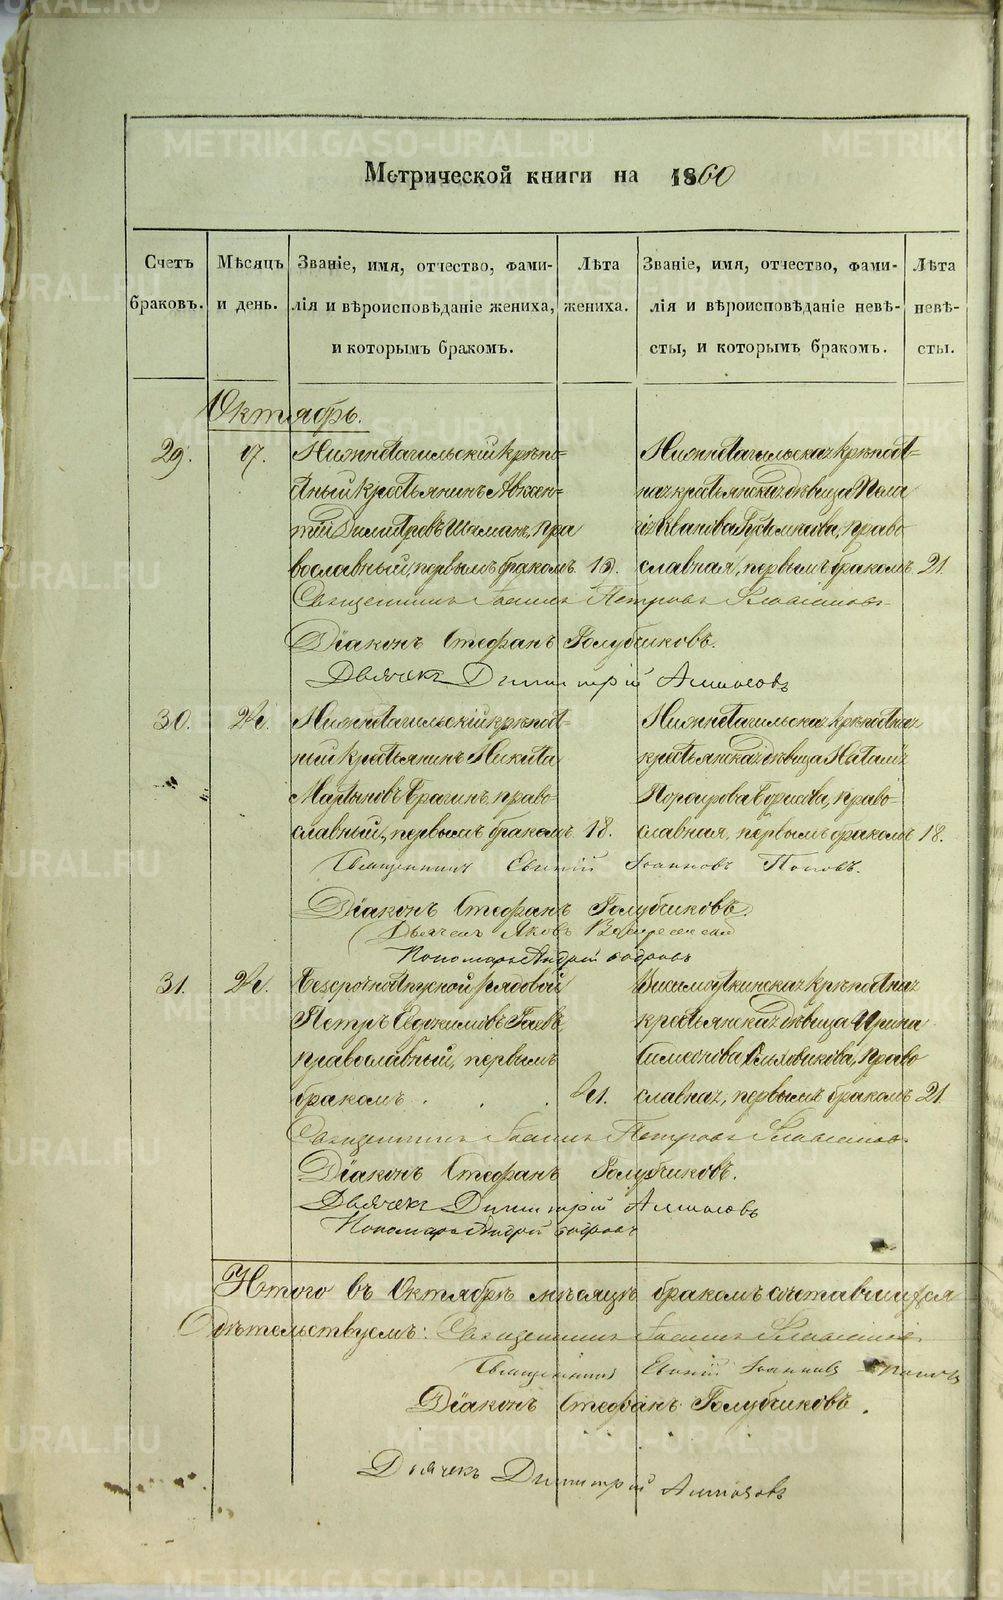 Метрической книги на 1860
Счетъ браковъ.
Мѣсяцъ и день.
Званіе, имя, отчество, фами-
лія и вѣроисповѣданіе жениха,
и которымъ бракомъ.
Лѣта жениха.
Званіе, имя, отчество, фами-
лія и вѣроисповѣданіе невѣ-
сты, и которымъ бракомъ.
Лѣта невѣ-
сты.
Октябрь.
29. 17.
Нижнетагильскій крѣпо-
стный крестьянинъ Авксен-
тій Димитріевъ, пра
вославный, первымъ бракомъ
Нижнетагильская крѣпост-
ная крестьянская дѣвица Пела
гія Иванова, право
славная, первымъ бракомъ 21.
Священникъ Іоаннъ Петровъ
Діаконъ Стефанъ Голубчиковъ.
Дьячекъ Димитрій
30. 24.
Нижнетагильскій крѣпост-
ный крестьянинъ Никита
Мартыновъ Брагинъ, право-
славный, первымъ бракомъ 18.
Нижнетагильская крѣпостная
крестьянская дѣвица Наталія
Порфирова Борисова, право-
славная, первымъ бракомъ 18.
Священникъ Евгеній Іоанновъ Поповъ.
Діаконъ Стефанъ Голубчиковъ.
Дьячекъ Яковъ Воскресенскій
Пономарь Андрей Бобровъ
31. 24.
Безсрочноотпускной рядовой
Петръ Евдокимовъ Гаевъ
православный, первымъ
бракомъ . . . 41.
Висимоуткинская крѣпостная
крестьянская дѣвица Ирина
Симеонова, право
славная, первымъ бракомъ 21.
Священникъ Іоаннъ Петровъ
Діаконъ Стефанъ Голубчиковъ.
Дьячекъ Димитрій
Пономарь Андрей Бобровъ
Итого въ Октябрѣ мѣсяцѣ бракомъ сочетавшихся
Свидѣтельствуемъ: Священникъ Іоаннъ
Священникъ Евгеній Іоанновъ Поповъ
Діаконъ Стефанъ Голубчиковъ.
Дьячекъ Димитрій
METRIKI.GASO-URAL.RU